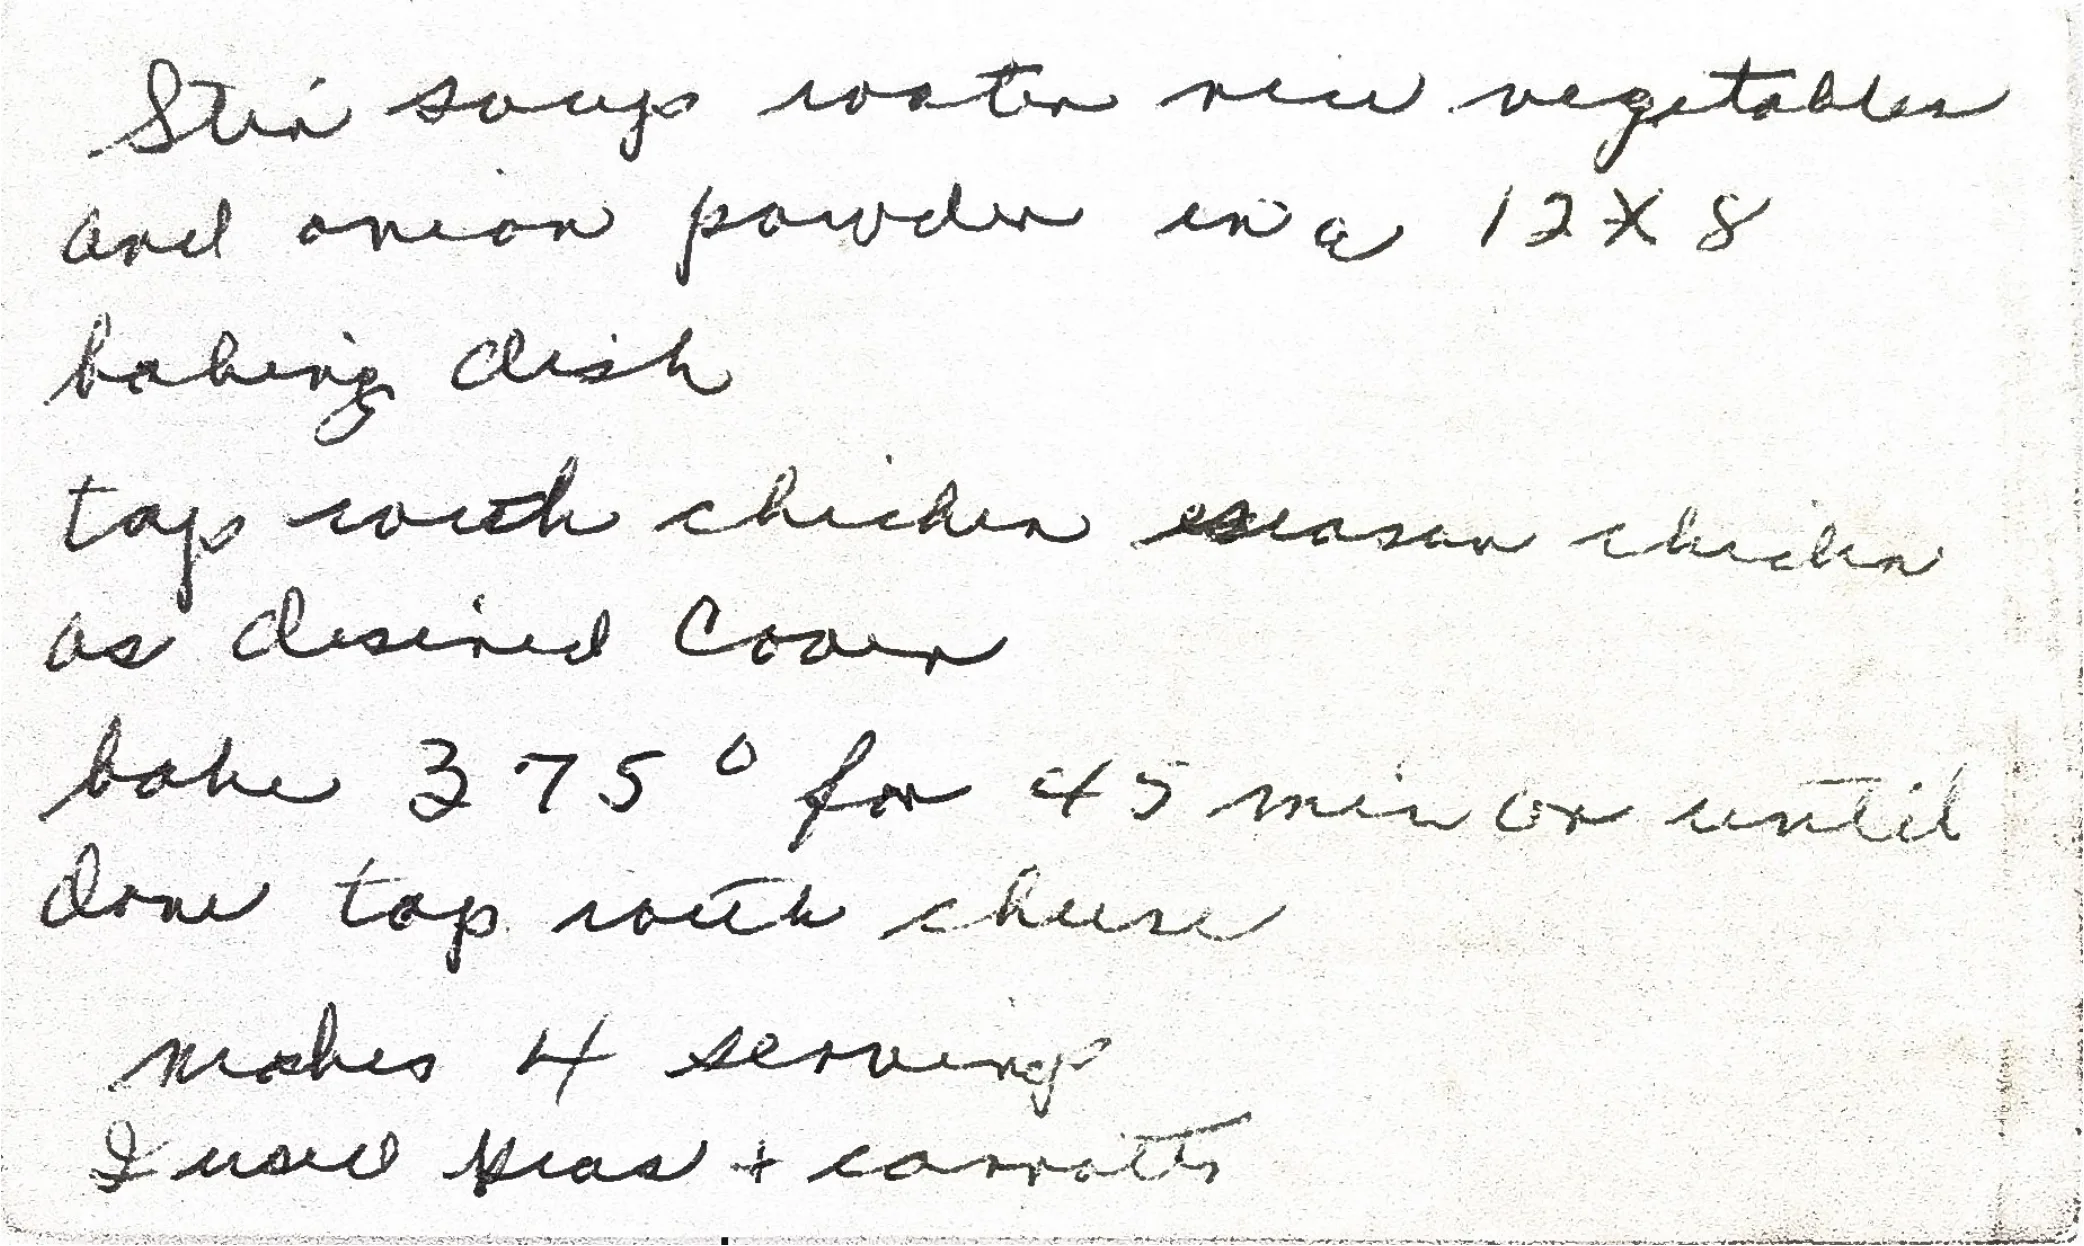 Stir soup water rice vegetables
and onion powder in a 12 X 8
baking dish
top with chicken season chicken
as desired Cover
bake 375° for 45 min or until
done top with cheese
makes 4 serving
I used peas + carrotts